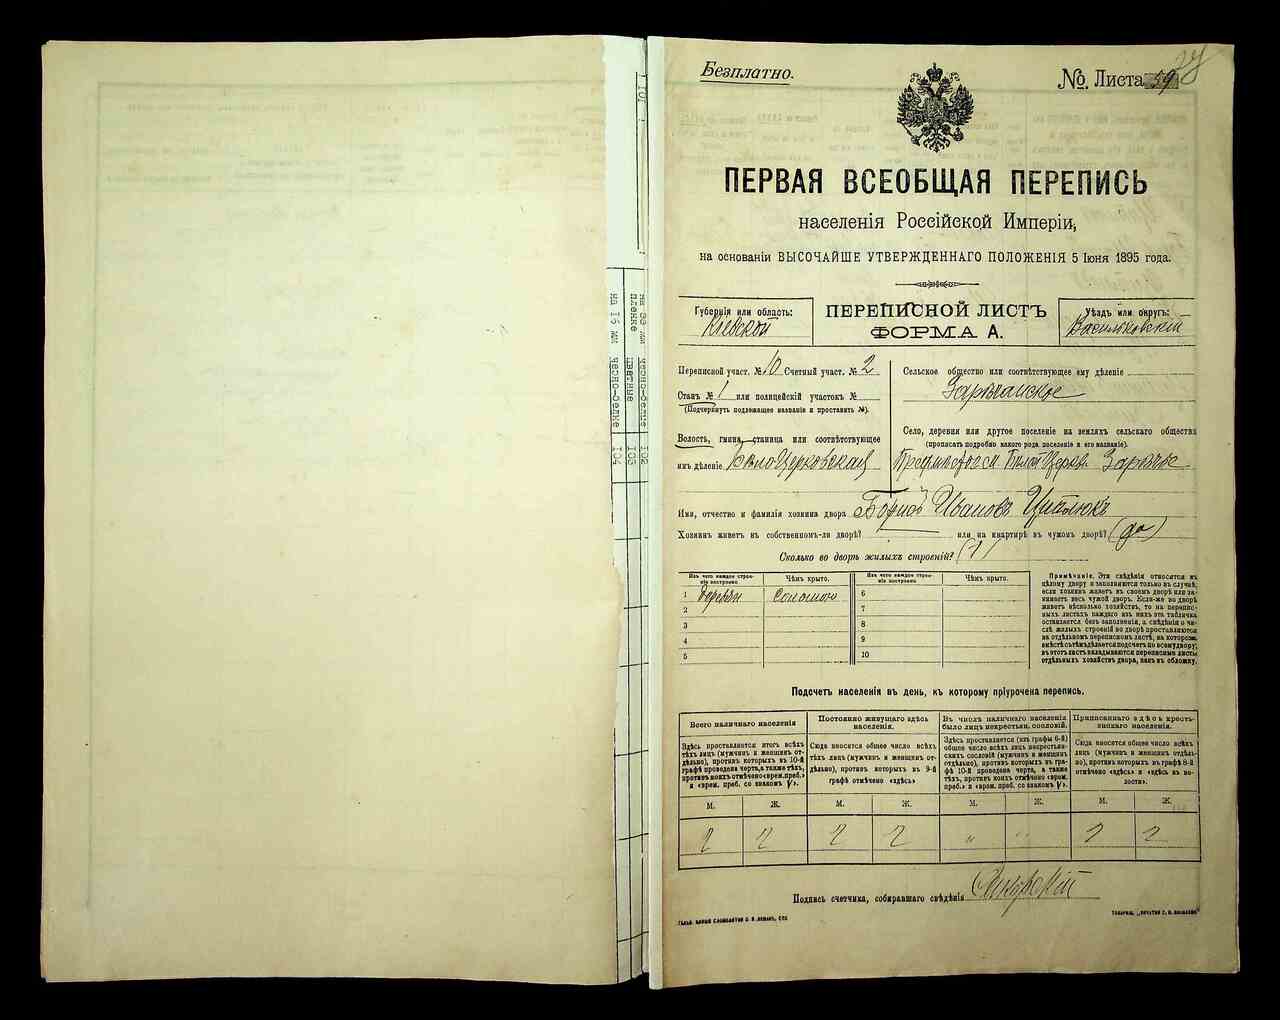 Безплатно.
№ Листа 59
ПЕРВАЯ ВСЕОБЩАЯ ПЕРЕПИСЬ
населенія Россійской Имперіи,
на основаніи ВЫСОЧАЙШЕ УТВЕРЖДЕННАГО ПОЛОЖЕНІЯ 5 Іюня 1895 года.
Губернія или область:
Кіевской
ПЕРЕПИСНОЙ ЛИСТЪ
ФОРМА А.
Уѣздъ или округъ:
Васильковскій
Переписной участ. № 10 Счетный участ. № 2
Станъ № 1 или полицейскій участокъ №
(Подчеркнуть подлежащее названіе и проставить №).
Волость, гмина, станица или соотвѣтствующее
имъ дѣленіе Бѣлоцерковская
Сельское общество или соотвѣтствующее ему дѣленіе
Зарѣчанское
Село, деревня или другое поселеніе на земляхъ сельскаго общества
(прописать подробно какого рода поселеніе и его названіе).
Предмѣстье м. Бѣлая Церковь Зарѣчье
Имя, отчество и фамилія хозяина двора Ивановъ
Хозяинъ живетъ въ собственномъ-ли дворѣ? или на квартирѣ въ чужомъ дворѣ? (да)
Сколько во дворѣ жилыхъ строеній? (1)
Изъ чего каждое строеніе построено
Чѣмъ крыто.
Изъ чего каждое строеніе построено
Чѣмъ крыто.
1 Деревян Соломою 6
2 7
3 8
4 9
5 10
Примѣчаніе. Эти свѣдѣнія относятся къ
цѣлому двору и заполняются только въ случаѣ,
если хозяинъ живетъ въ своемъ дворѣ или за-
нимаетъ весь чужой дворъ. Если-же во дворѣ
живетъ нѣсколько хозяйствъ, то на перепис-
ныхъ листахъ каждаго изъ нихъ эта табличка
оставляется безъ заполненія, а свѣдѣнія о чи-
слѣ жилыхъ строеній во дворѣ проставляются
на отдѣльномъ переписномъ листѣ, на которомъ
вмѣстѣ съ тѣмъ дѣлается подсчетъ по всему двору;
въ этотъ листъ вкладываются переписные листы
отдѣльныхъ хозяйствъ двора, какъ въ обложку.
Подсчетъ населенія въ день, къ которому пріурочена перепись.
Всего наличнаго населенія
Постоянно живущаго здѣсь
населенія.
Въ числѣ наличнаго населенія
было лицъ некрестьян. сословій.
Приписаннаго здѣсь кресть-
янскаго населенія.
Здѣсь проставляется итогъ всѣхъ
тѣхъ лицъ (мужчинъ и женщинъ от-
дѣльно), противъ которыхъ въ 10-й
графѣ проведена черта, а также тѣхъ,
противъ коихъ отмѣчено «врем. преб.»
и «врем. преб. со знакомъ V».
Сюда вносится общее число всѣхъ
тѣхъ лицъ (мужчинъ и женщинъ от-
дѣльно), противъ которыхъ въ 9-й
графѣ отмѣчено «здѣсь»
Здѣсь проставляется (изъ графы 6-й)
общее число всѣхъ лицъ некрестьян-
скихъ сословій (мужчинъ и женщинъ
отдѣльно), противъ которыхъ въ гра-
фѣ 10-й проведена черта, а также
тѣхъ, противъ коихъ отмѣчено «врем.
преб.» и «врем. преб. со знакомъ V».
Сюда вносится общее число всѣхъ
лицъ (мужчинъ и женщинъ отдѣль-
но), противъ которыхъ въ графѣ 8-й
отмѣчено «здѣсь» и «здѣсь въ во-
лости».
М. Ж. М. Ж. М. Ж. М. Ж.
2 2 2 2 " " 2 2
Подпись счетчика, собиравшаго свѣдѣнія